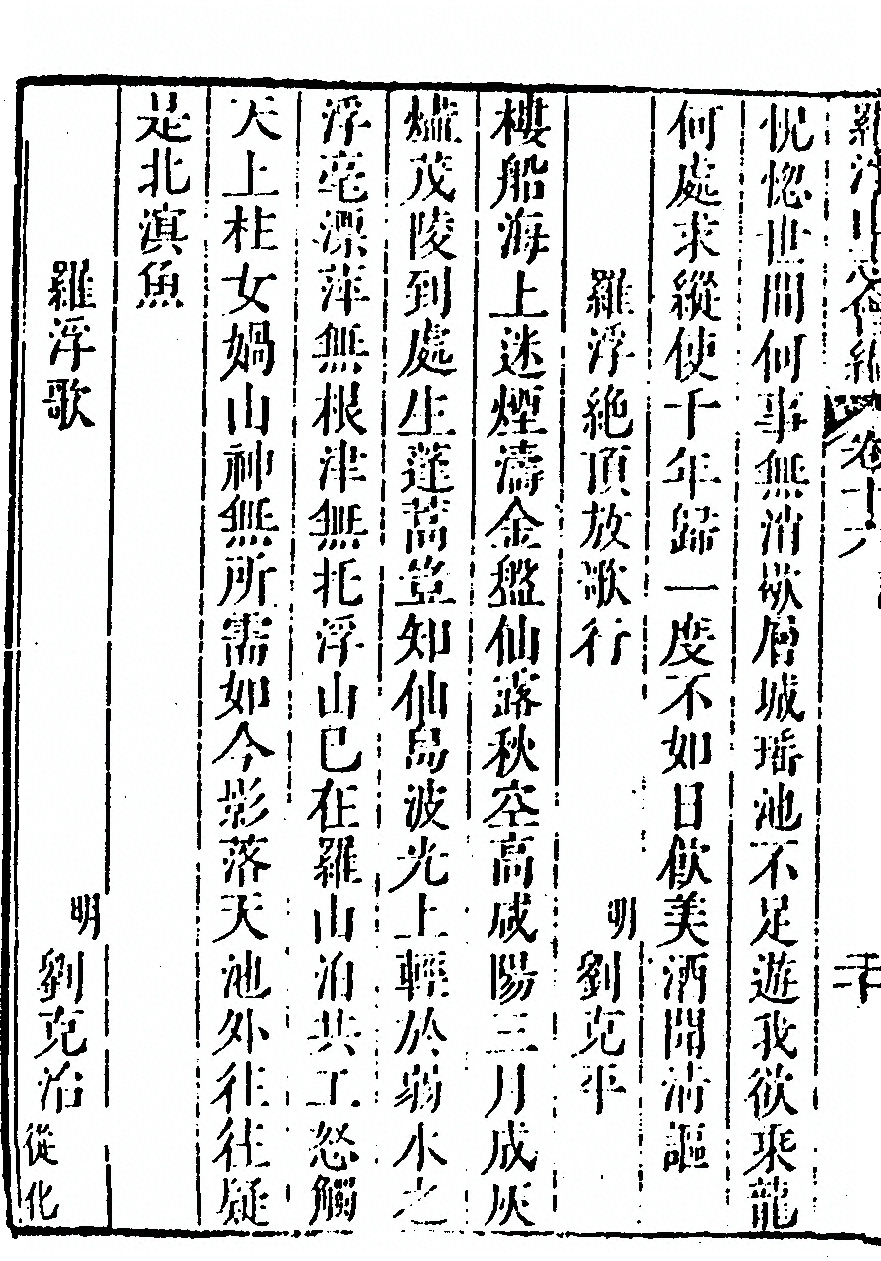 羅浮山志會編 卷十六
恍惚世間何事無消歇層城瑤池不足遊我欲乘龍
何處求縱使千年歸一度不如日飲美酒開清謳
羅浮絶頂放歌行 明 劉克平
樓船海上迷煙濤金盤仙露秋空高咸陽三月成灰
燼茂陵到處生蓬蒿豈知仙島波光上輕於弱水之
浮亳漂萍無根津無托浮山已在羅山泊共工怒觸
天上柱女媧山神無所需如今影落天池外往往疑
是北溟魚
羅浮歌 明 劉克治 從化